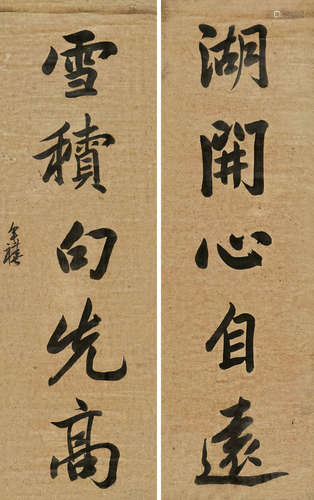 湖開心自遠
雪積句先高